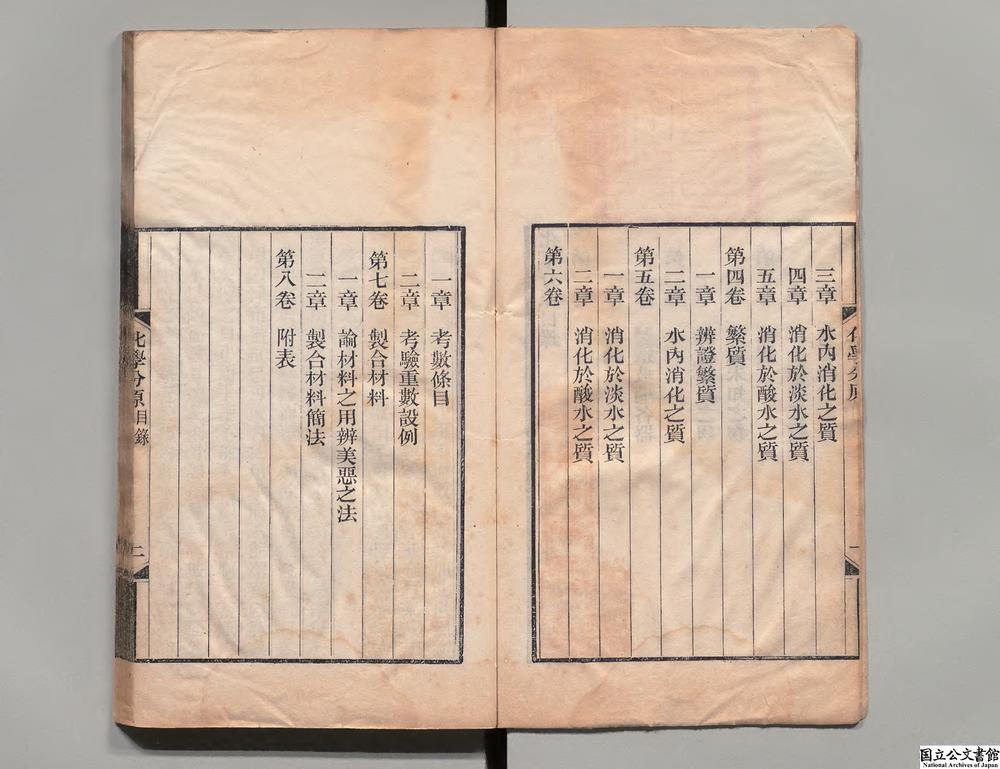 三章　水內消化之質
四章　消化於淡水之質
五章　消化於酸水之質
第四卷　繁質
一章　辨證繁質
二章　水內消化之質
第五卷
一章　消化於淡水之質
二章　消化於酸水之質
第六卷
一章　考數條目
二章　考驗重數設例
第七卷　製合材料
一章　論材料之用辨美惡之法
二章　製合材料簡法
第八卷　附表
化學分原目錄
二
国立公文書館
National Archives of Japan